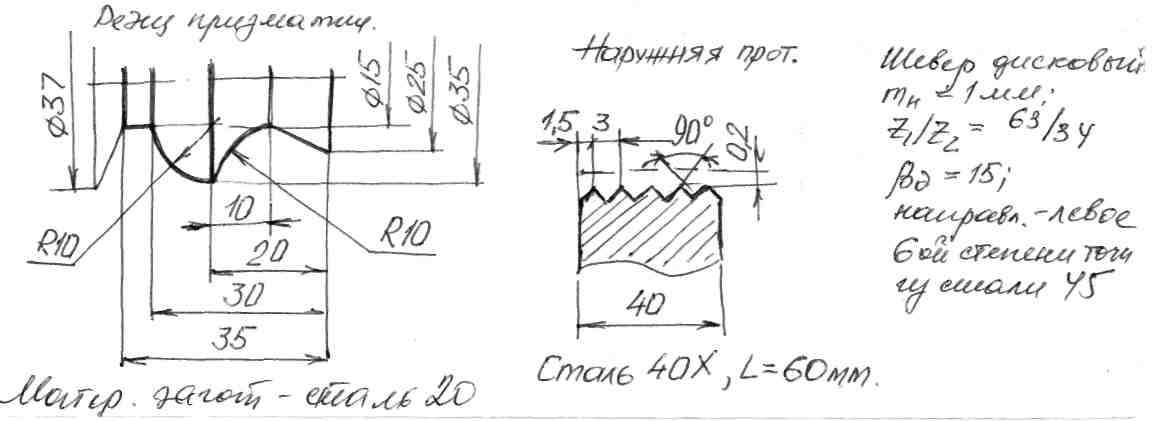 Резец призматич.
ø37
ø15
ø25
ø35
R10
R10
10
20
30
35
Матер. загот - сталь 20
Наружняя прот.
1,5
3
90°
0,2
40
Сталь 40Х, L=60мм.
Шевер дисковый
mн = 1 мм;
Z1/Z2 = 63/34
βд = 15;
направл. - левое
6ой степени точн
из стали 45